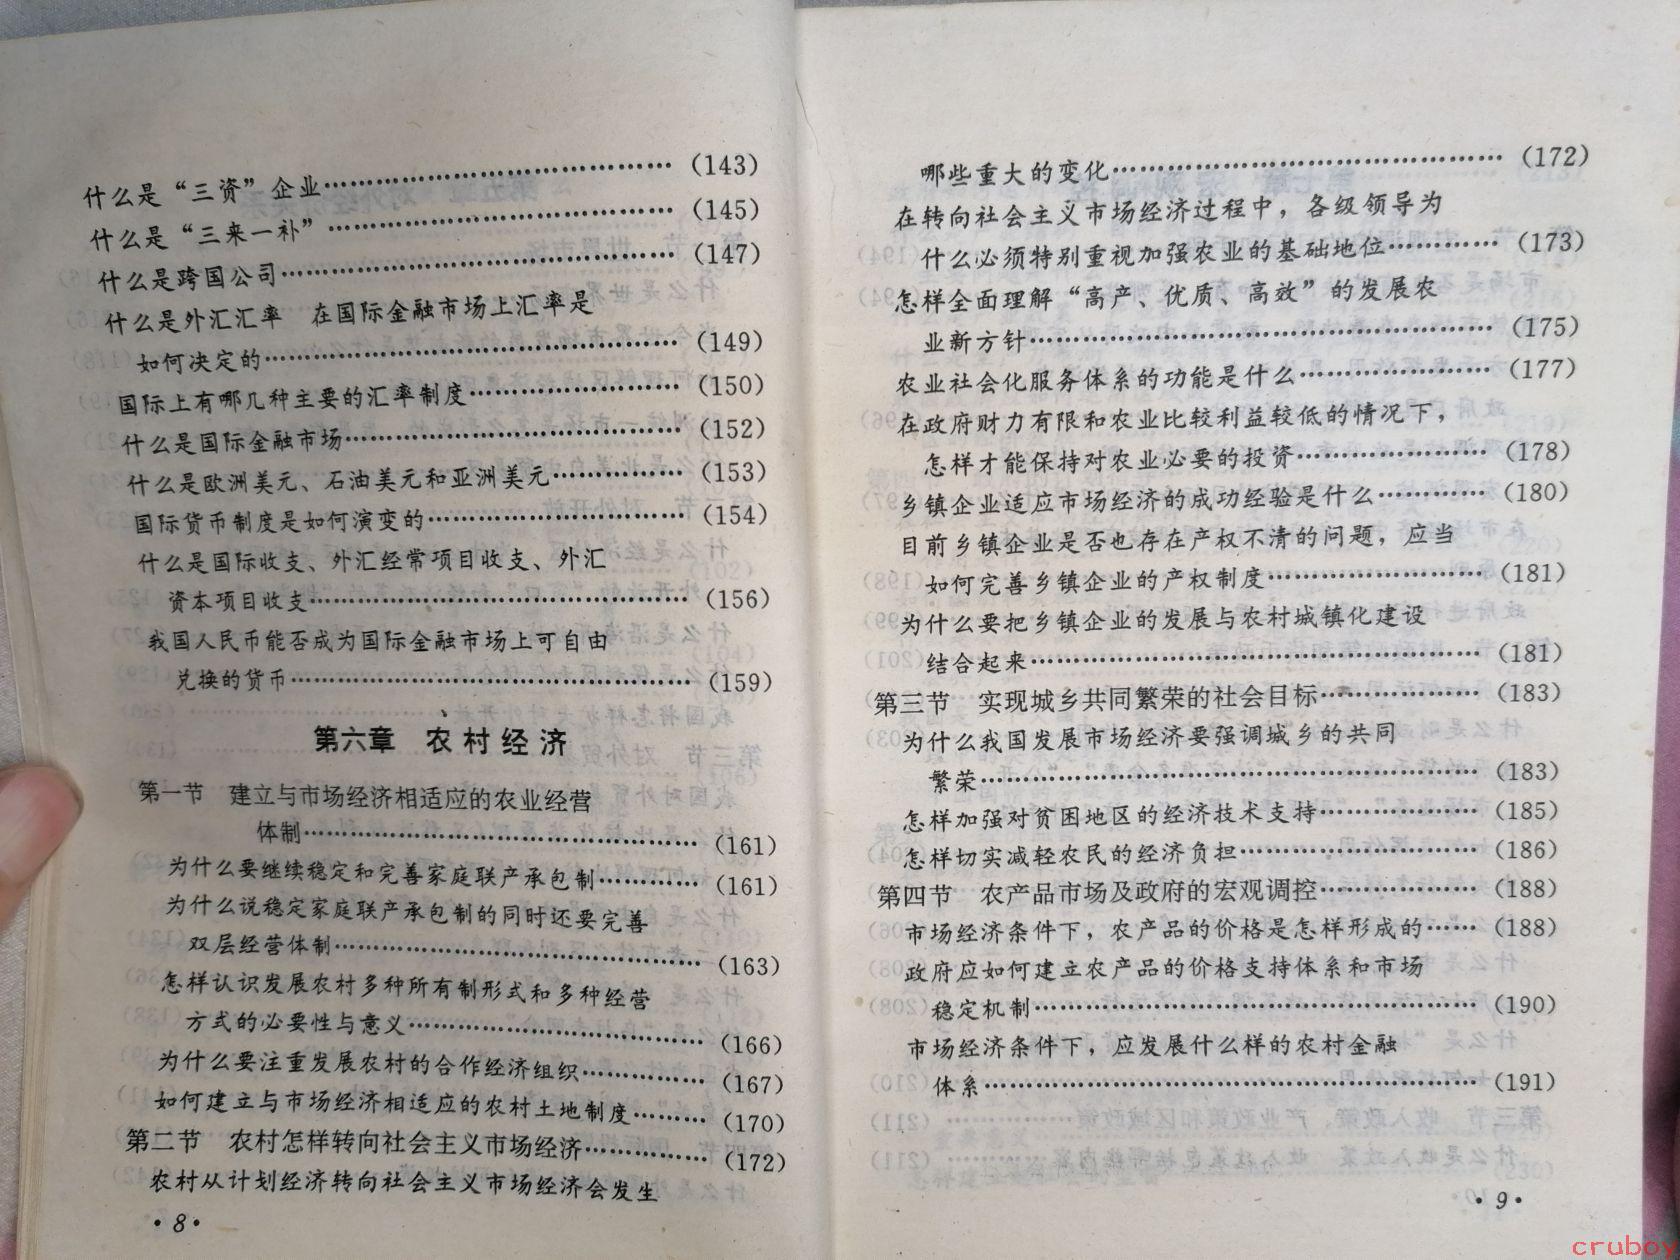 什么是“三资”企业……………………………………(143)
什么是“三来一补”……………………………………(145)
什么是跨国公司………………………………………(147)
什么是外汇汇率 在国际金融市场上汇率是
如何决定的……………………………………………(149)
国际上有哪几种主要的汇率制度……………………(150)
什么是国际金融市场…………………………………(152)
什么是欧洲美元、石油美元和亚洲美元……………(153)
国际货币制度是如何演变的…………………………(154)
什么是国际收支、外汇经常项目收支、外汇
资本项目收支…………………………………………(156)
我国人民币能否成为国际金融市场上可自由
兑换的货币……………………………………………(159)
第六章 农村经济
第一节 建立与市场经济相适应的农业经营
体制……………………………………………………(161)
为什么要继续稳定和完善家庭联产承包制…………(161)
为什么说稳定家庭联产承包制的同时还要完善
双层经营体制…………………………………………(163)
怎样认识发展农村多种所有制形式和多种经营
方式的必要性与意义…………………………………(166)
为什么要注重发展农村的合作经济组织……………(167)
如何建立与市场经济相适应的农村土地制度………(170)
第二节 农村怎样转向社会主义市场经济……………(172)
农村从计划经济转向社会主义市场经济会发生
·8·
哪些重大的变化………………………………………(172)
在转向社会主义市场经济过程中，各级领导为
什么必须特别重视加强农业的基础地位……………(173)
怎样全面理解“高产、优质、高效”的发展农
业新方针………………………………………………(175)
农业社会化服务体系的功能是什么…………………(177)
在政府财力有限和农业比较利益较低的情况下，
怎样才能保持对农业必要的投资……………………(178)
乡镇企业适应市场经济的成功经验是什么…………(180)
目前乡镇企业是否也存在产权不清的问题，应当
如何完善乡镇企业的产权制度………………………(181)
为什么要把乡镇企业的发展与农村城镇化建设
结合起来………………………………………………(181)
第三节 实现城乡共同繁荣的社会目标………………(183)
为什么我国发展市场经济要强调城乡的共同
繁荣……………………………………………………(183)
怎样加强对贫困地区的经济技术支持………………(185)
怎样切实减轻农民的经济负担………………………(186)
第四节 农产品市场及政府的宏观调控………………(188)
市场经济条件下，农产品的价格是怎样形成的……(188)
政府应如何建立农产品的价格支持体系和市场
稳定机制………………………………………………(190)
市场经济条件下，应发展什么样的农村金融
体系……………………………………………………(191)
·9·
cruboy